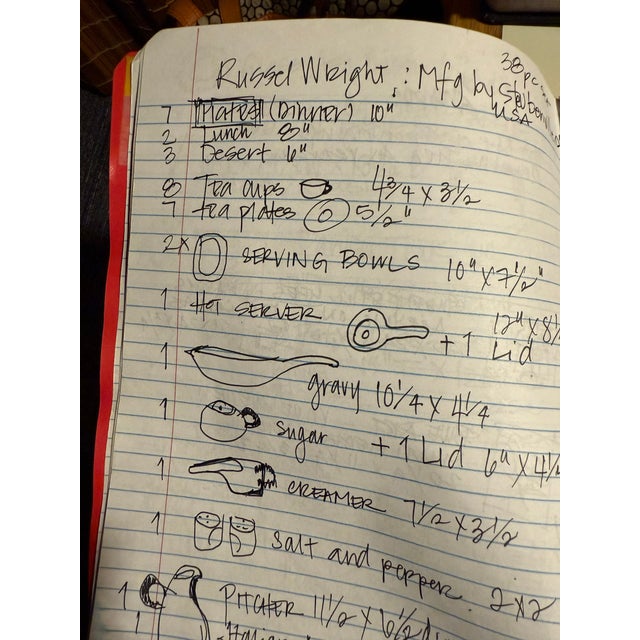 38 pc set
Russel Wright : Mfg by Steubenville
USA
7 Plates (Dinner) 10"
2 Lunch 8"
3 Desert 6"
8 Tea cups 4 3/4 X 3 1/2
7 tea plates 5 1/2"
2x SERVING BOWLS 10" X 7 1/2"
1 Hot SERVER 12" X 8 1/2
+ 1 Lid
1 gravy 10 1/4 X 4 1/4
1 sugar + 1 Lid 6" X 4 1/4
1 CREAMER 7 1/2 X 3 1/2
1 Salt and pepper 2x2
1 PITCHER 11 1/2 X 6 1/2
1